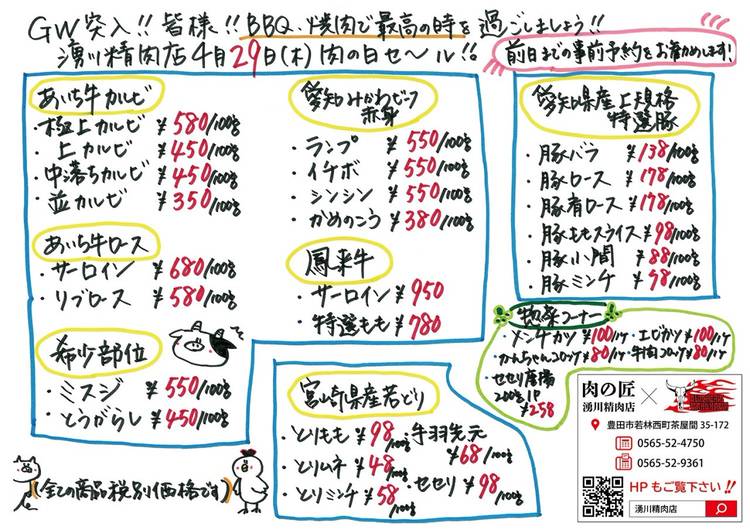 GW突入!! 皆様!! BBQ、焼肉で最高の時を過ごしましょう!!
湧川精肉店4月29日(木)肉の日セール!!
前日までの事前予約をお勧めします!
あいち牛カルビ
・極上カルビ ¥580/100g
・上カルビ ¥450/100g
・中落ちカルビ ¥450/100g
・並カルビ ¥350/100g
あいち牛ロース
・サーロイン ¥680/100g
・リブロース ¥580/100g
希少部位
・ミスジ ¥550/100g
・とうがらし ¥450/100g
愛知みかわビーフ
赤身
・ランプ ¥550/100g
・イチボ ¥550/100g
・シンシン ¥550/100g
・かめのこう ¥380/100g
鳳来牛
・サーロイン ¥950
・特選もも ¥780
愛知県産上規格
特選豚
・豚バラ ¥138/100g
・豚ロース ¥178/100g
・豚肩ロース ¥178/100g
・豚ももスライス ¥98/100g
・豚小間 ¥88/100g
・豚ミンチ ¥98/100g
惣菜コーナー
・メンチカツ ¥100/1ケ ・エビカツ ¥100/1ケ
・かんちゃんコロッケ ¥80/1ケ ・牛肉コロッケ ¥80/1ケ
・セセリ唐揚
200g 1P
¥258
宮崎県産若どり
・とりもも ¥98/100g
・とりムネ ¥48/100g
・とりミンチ ¥58/100g
・手羽先元
¥68/100g
・セセリ ¥98/100g
(全ての商品税別価格です)
肉の匠
湧川精肉店
豊田市若林西町茶屋間 35-172
0565-52-4750
0565-52-9361
HP もご覧下さい!!
湧川精肉店